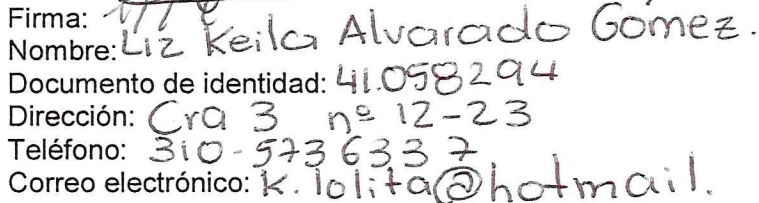 Firma:
Nombre: Liz Keila Alvarado Gomez.
Documento de identidad: 41.058294
Dirección: Cra 3 nº 12-23
Teléfono: 310-5736337
Correo electrónico: K.lolita@hotmail.